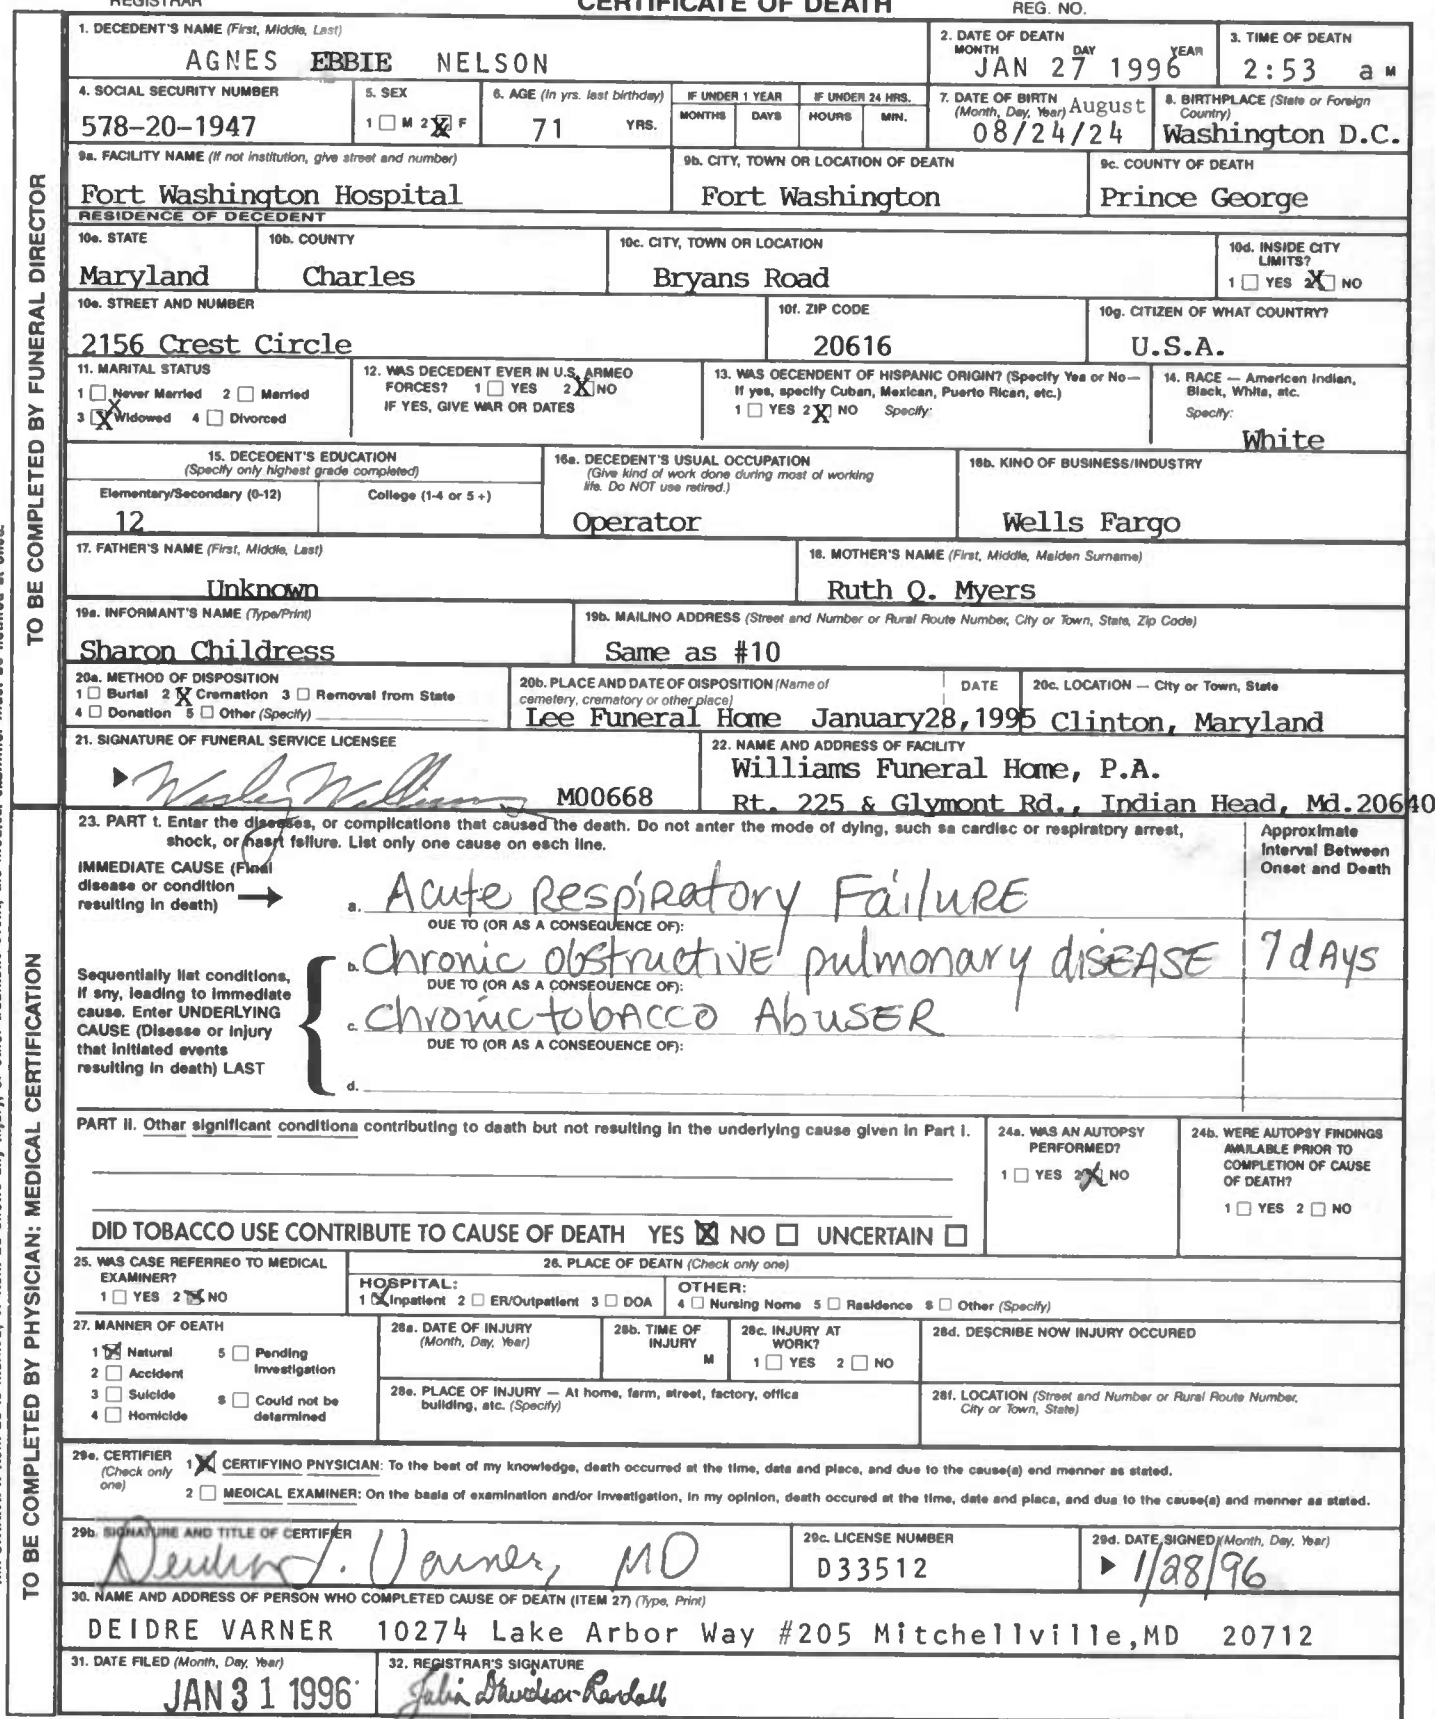 REGISTRAR CERTIFICATE OF DEATH REG. NO.
1. DECEDENT'S NAME (First, Middle, Last)
AGNES EBBIE NELSON
2. DATE OF DEATH
MONTH DAY YEAR
JAN 27 1996
3. TIME OF DEATH
2:53 a M
4. SOCIAL SECURITY NUMBER
578-20-1947
5. SEX
1 M 2 X F
6. AGE (In yrs. last birthday)
71 YRS.
IF UNDER 1 YEAR
MONTHS DAYS
IF UNDER 24 HRS.
HOURS MIN.
7. DATE OF BIRTH
(Month, Day, Year) August
08/24/24
8. BIRTHPLACE (State or Foreign
Country)
Washington D.C.
9a. FACILITY NAME (If not institution, give street and number)
Fort Washington Hospital
9b. CITY, TOWN OR LOCATION OF DEATH
Fort Washington
9c. COUNTY OF DEATH
Prince George
RESIDENCE OF DECEDENT
10a. STATE
Maryland
10b. COUNTY
Charles
10c. CITY, TOWN OR LOCATION
Bryans Road
10d. INSIDE CITY
LIMITS?
1 YES 2 X NO
10e. STREET AND NUMBER
2156 Crest Circle
10f. ZIP CODE
20616
10g. CITIZEN OF WHAT COUNTRY?
U.S.A.
11. MARITAL STATUS
1 Never Married 2 Married
3 X Widowed 4 Divorced
12. WAS DECEDENT EVER IN U.S. ARMED
FORCES? 1 YES 2 X NO
IF YES, GIVE WAR OR DATES
13. WAS DECENDENT OF HISPANIC ORIGIN? (Specify Yes or No—
If yes, specify Cuban, Mexican, Puerto Rican, etc.)
1 YES 2 X NO Specify:
14. RACE — American Indian,
Black, White, etc.
Specify:
White
15. DECEDENT'S EDUCATION
(Specify only highest grade completed)
Elementary/Secondary (0-12) College (1-4 or 5+)
12
16a. DECEDENT'S USUAL OCCUPATION
(Give kind of work done during most of working
life. Do NOT use retired.)
Operator
16b. KIND OF BUSINESS/INDUSTRY
Wells Fargo
17. FATHER'S NAME (First, Middle, Last)
Unknown
18. MOTHER'S NAME (First, Middle, Maiden Surname)
Ruth Q. Myers
19a. INFORMANT'S NAME (Type/Print)
Sharon Childress
19b. MAILING ADDRESS (Street and Number or Rural Route Number, City or Town, State, Zip Code)
Same as #10
20a. METHOD OF DISPOSITION
1 Burial 2 X Cremation 3 Removal from State
4 Donation 5 Other (Specify)
20b. PLACE AND DATE OF DISPOSITION (Name of
cemetery, crematory or other place) DATE
Lee Funeral Home January28,1995
20c. LOCATION — City or Town, State
Clinton, Maryland
21. SIGNATURE OF FUNERAL SERVICE LICENSEE
Wesley Williams M00668
22. NAME AND ADDRESS OF FACILITY
Williams Funeral Home, P.A.
Rt. 225 & Glymont Rd., Indian Head, Md.20640
TO BE COMPLETED BY FUNERAL DIRECTOR
23. PART I. Enter the diseases, or complications that caused the death. Do not enter the mode of dying, such as cardiac or respiratory arrest,
shock, or heart failure. List only one cause on each line.
Approximate
Interval Between
Onset and Death
IMMEDIATE CAUSE (Final
disease or condition
resulting in death)
a. Acute Respiratory Failure
DUE TO (OR AS A CONSEQUENCE OF):
b. Chronic obstructive pulmonary disease 7 days
DUE TO (OR AS A CONSEQUENCE OF):
c. Chronic tobacco Abuser
DUE TO (OR AS A CONSEQUENCE OF):
d.
Sequentially list conditions,
if any, leading to immediate
cause. Enter UNDERLYING
CAUSE (Disease or injury
that initiated events
resulting in death) LAST
PART II. Other significant conditions contributing to death but not resulting in the underlying cause given in Part I.
DID TOBACCO USE CONTRIBUTE TO CAUSE OF DEATH YES X NO UNCERTAIN
24a. WAS AN AUTOPSY
PERFORMED?
1 YES 2 X NO
24b. WERE AUTOPSY FINDINGS
AVAILABLE PRIOR TO
COMPLETION OF CAUSE
OF DEATH?
1 YES 2 NO
25. WAS CASE REFERRED TO MEDICAL
EXAMINER?
1 YES 2 X NO
26. PLACE OF DEATH (Check only one)
HOSPITAL:
1 X Inpatient 2 ER/Outpatient 3 DOA
OTHER:
4 Nursing Home 5 Residence 6 Other (Specify)
27. MANNER OF DEATH
1 X Natural 5 Pending
2 Accident Investigation
3 Suicide 6 Could not be
4 Homicide determined
28a. DATE OF INJURY
(Month, Day, Year)
28b. TIME OF
INJURY
M
28c. INJURY AT
WORK?
1 YES 2 NO
28d. DESCRIBE HOW INJURY OCCURED
28e. PLACE OF INJURY — At home, farm, street, factory, office
building, etc. (Specify)
28f. LOCATION (Street and Number or Rural Route Number,
City or Town, State)
29a. CERTIFIER
(Check only
one)
1 X CERTIFYING PHYSICIAN: To the best of my knowledge, death occurred at the time, date and place, and due to the cause(s) and manner as stated.
2 MEDICAL EXAMINER: On the basis of examination and/or investigation, in my opinion, death occured at the time, date and place, and due to the cause(s) and manner as stated.
29b. SIGNATURE AND TITLE OF CERTIFIER
Deidre J. Varner, MD
29c. LICENSE NUMBER
D33512
29d. DATE SIGNED (Month, Day, Year)
1/28/96
30. NAME AND ADDRESS OF PERSON WHO COMPLETED CAUSE OF DEATH (ITEM 27) (Type, Print)
DEIDRE VARNER 10274 Lake Arbor Way #205 Mitchellville,MD 20712
31. DATE FILED (Month, Day, Year)
JAN 31 1996
32. REGISTRAR'S SIGNATURE
Julia Davidson-Randall
TO BE COMPLETED BY PHYSICIAN: MEDICAL CERTIFICATION